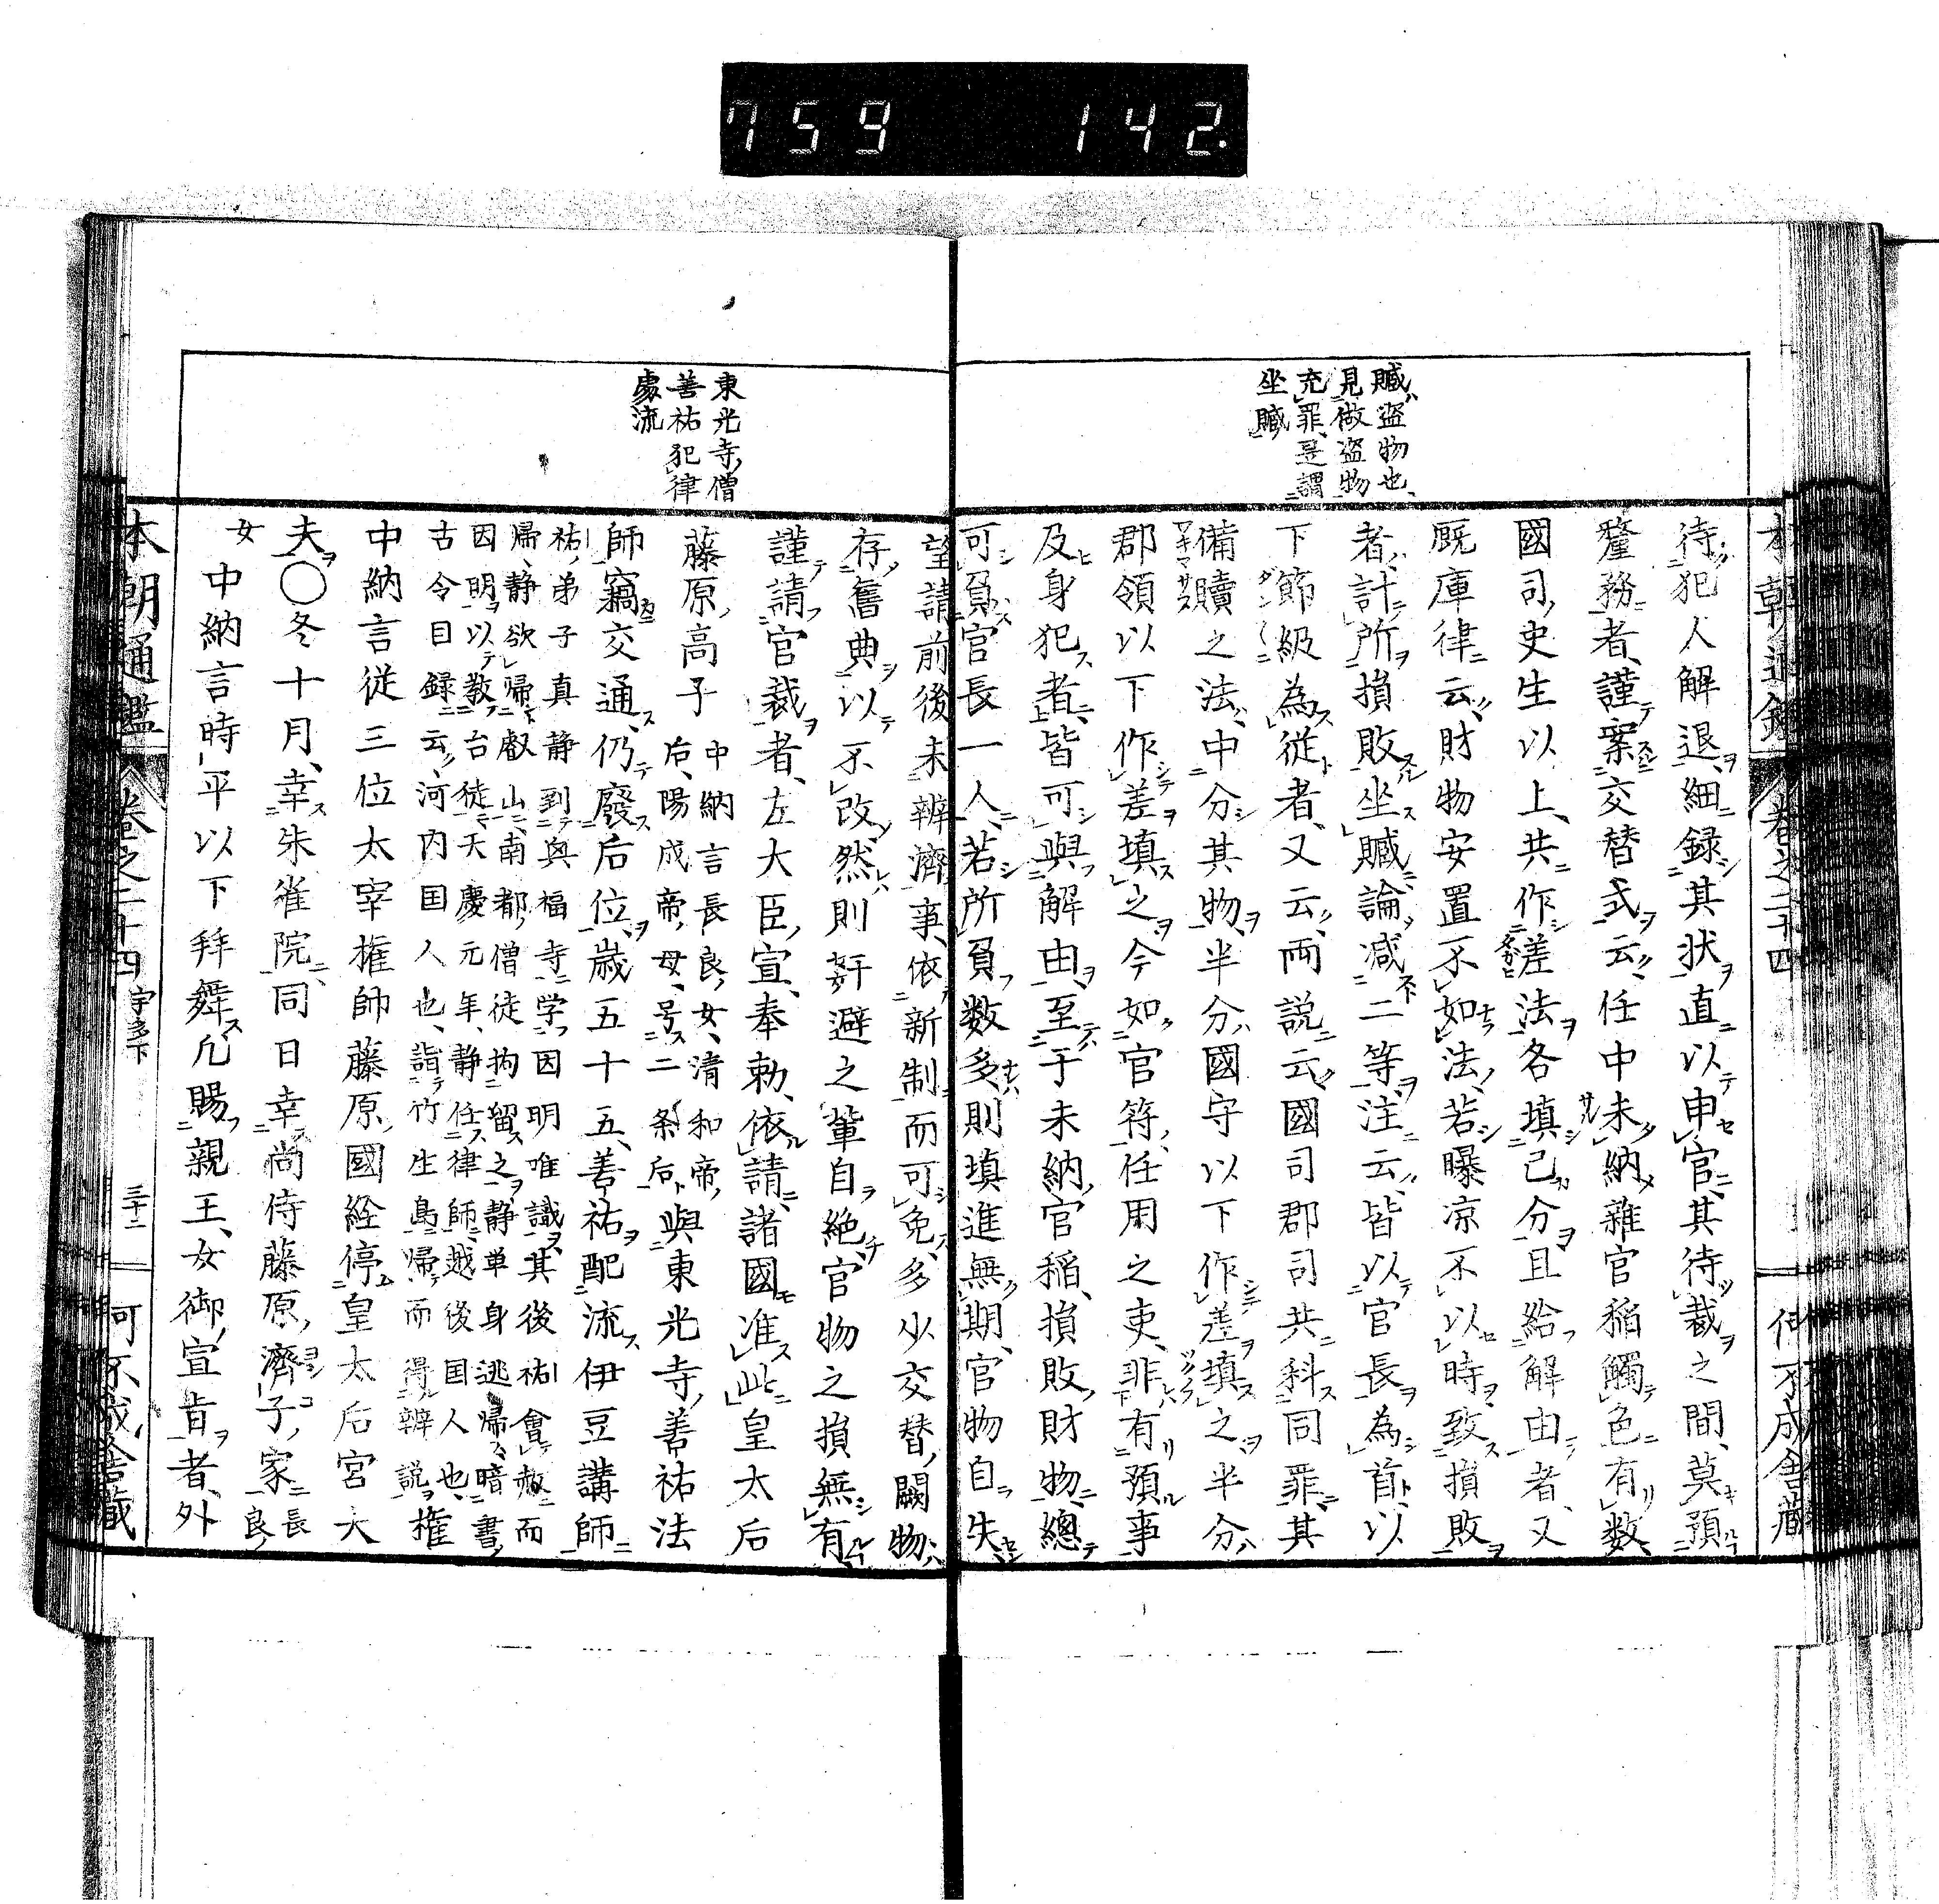 759 142
贓盗物也
見做盗物
充罪是謂
坐贓
待犯人解退細録其状直以申官其待裁之間莫預
釐務者謹案交替式云任中未納雜官稲觸色有数
國司史生以上共作差法各填己分且給解由者又
厩庫律云財物安置不如法若曝凉不以時致損敗
者計所損敗坐贓論減二等注云皆以官長為首以
下節級為從者又云両説云國司郡司共科同罪其
備贖之法中分其物半分國守以下作差填之半分
郡領以下作差填之今如官符任用之吏非有預事
及身犯者皆可與解由至于未納官稲損敗財物總
可負官長一人若所負数多則填進無期官物自失
東光寺僧
善祐犯律
處流
望請前後未辨濟事依新制而可免多少交替闕物
存舊典以不改然則奸避之輩自絶官物之損無有
謹請官裁者左大臣宣奉勅依請諸國准此皇太后
藤原高子中納言長良女清和帝
后陽成帝母号二条后與東光寺善祐法
師竊交通仍廢后位歳五十五善祐配流伊豆講師
祐弟子真静到興福寺学因明唯識其後祐會赦而
帰静欲帰叡山南都僧徒拘留之静単身逃帰暗書
因明以教台徒天慶元年静任律師越後国人也
古今目録云河内国人也詣竹生島帰而得辨説権
中納言従三位太宰権帥藤原國経停皇太后宮大
夫〇冬十月幸朱雀院同日幸尚侍藤原濟子家長良
女
中納言時平以下拜舞凢賜親王女御宣旨者外
本朝通鑑 卷之二十四 宇多下 三十二